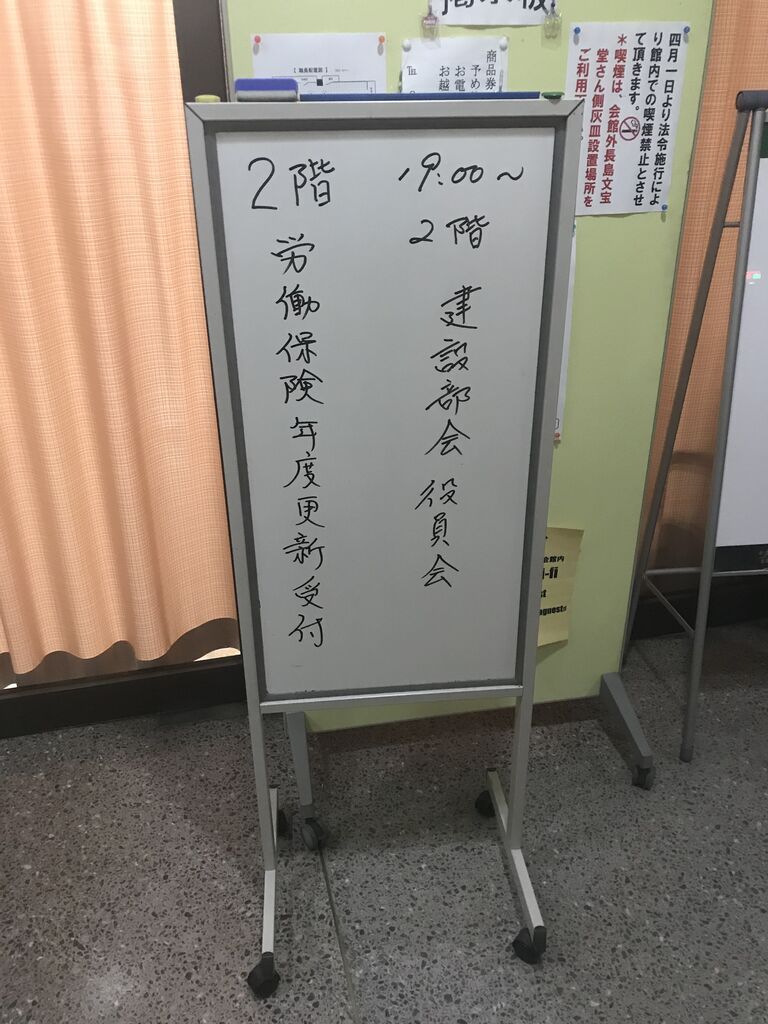 19:00~
2階
建設部会 役員会
2階
労働保険年度更新受付
四月一日より法令施行によ
り館内での喫煙禁止とさせ
て頂きます。
*喫煙は、会館外長島文宝
堂さん側灰皿設置場所を
ご利用
商品券
予め
お電
お越
会館内